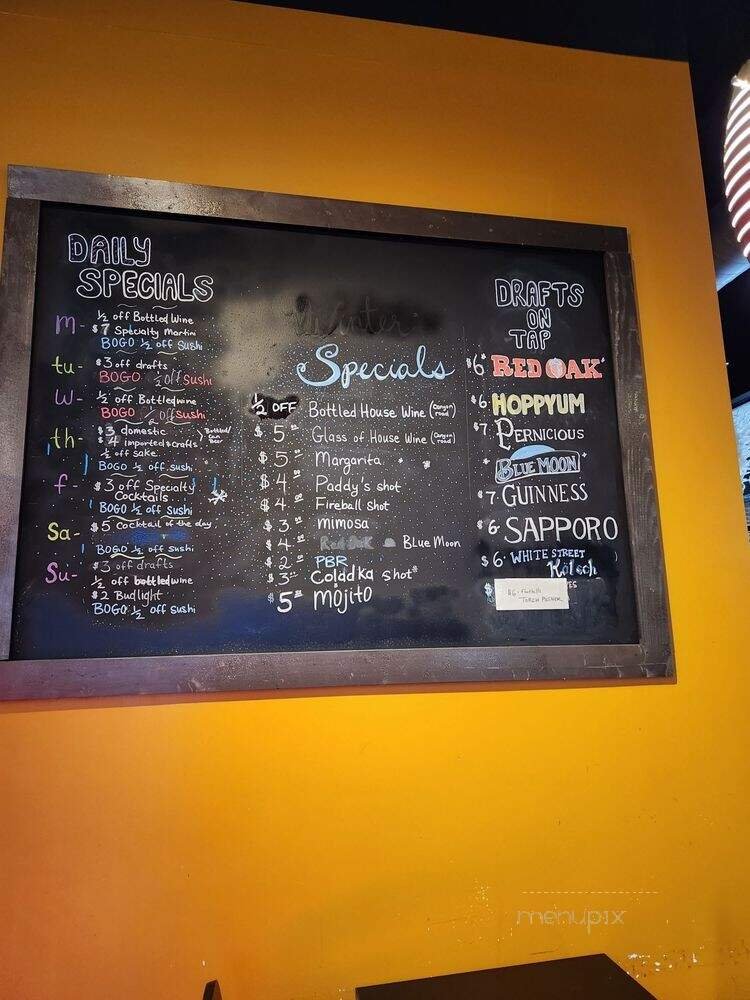 DAILY
SPECIALS
m- ½ off Bottled Wine
$7 Specialty Martini
BOGO ½ off Sushi
tu- $3 off drafts
BOGO ½ off Sushi
w- ½ off Bottled wine
BOGO ½ off sushi
th- $3 domestic
$4 imported & crafts
Bottled/
Can
Beer
½ off sake
BOGO ½ off sushi
f- $3 off Specialty
Cocktails
BOGO ½ off sushi
Sa- $5 Cocktail of the day
BOGO ½ off sushi
Su- $3 off drafts
½ off bottled wine
$2 Budlight
BOGO ½ off sushi
Winter
Specials
½ OFF Bottled House Wine (Canyon road)
$5 Glass of House Wine (Canyon road)
$5 Margarita
$4 Paddy's shot
$4 Fireball shot
$3 mimosa
$4 Red Oak Blue Moon
$2 PBR
$3 Coladka shot
$5 mojito
DRAFTS
ON
TAP
$6 RED OAK
$6 HOPPYUM
$7 PERNICIOUS
BLUE MOON
$7 GUINNESS
$6 SAPPORO
$6 WHITE STREET
Kölsch
$6 Foothills
TORCH PILSNER
menupix